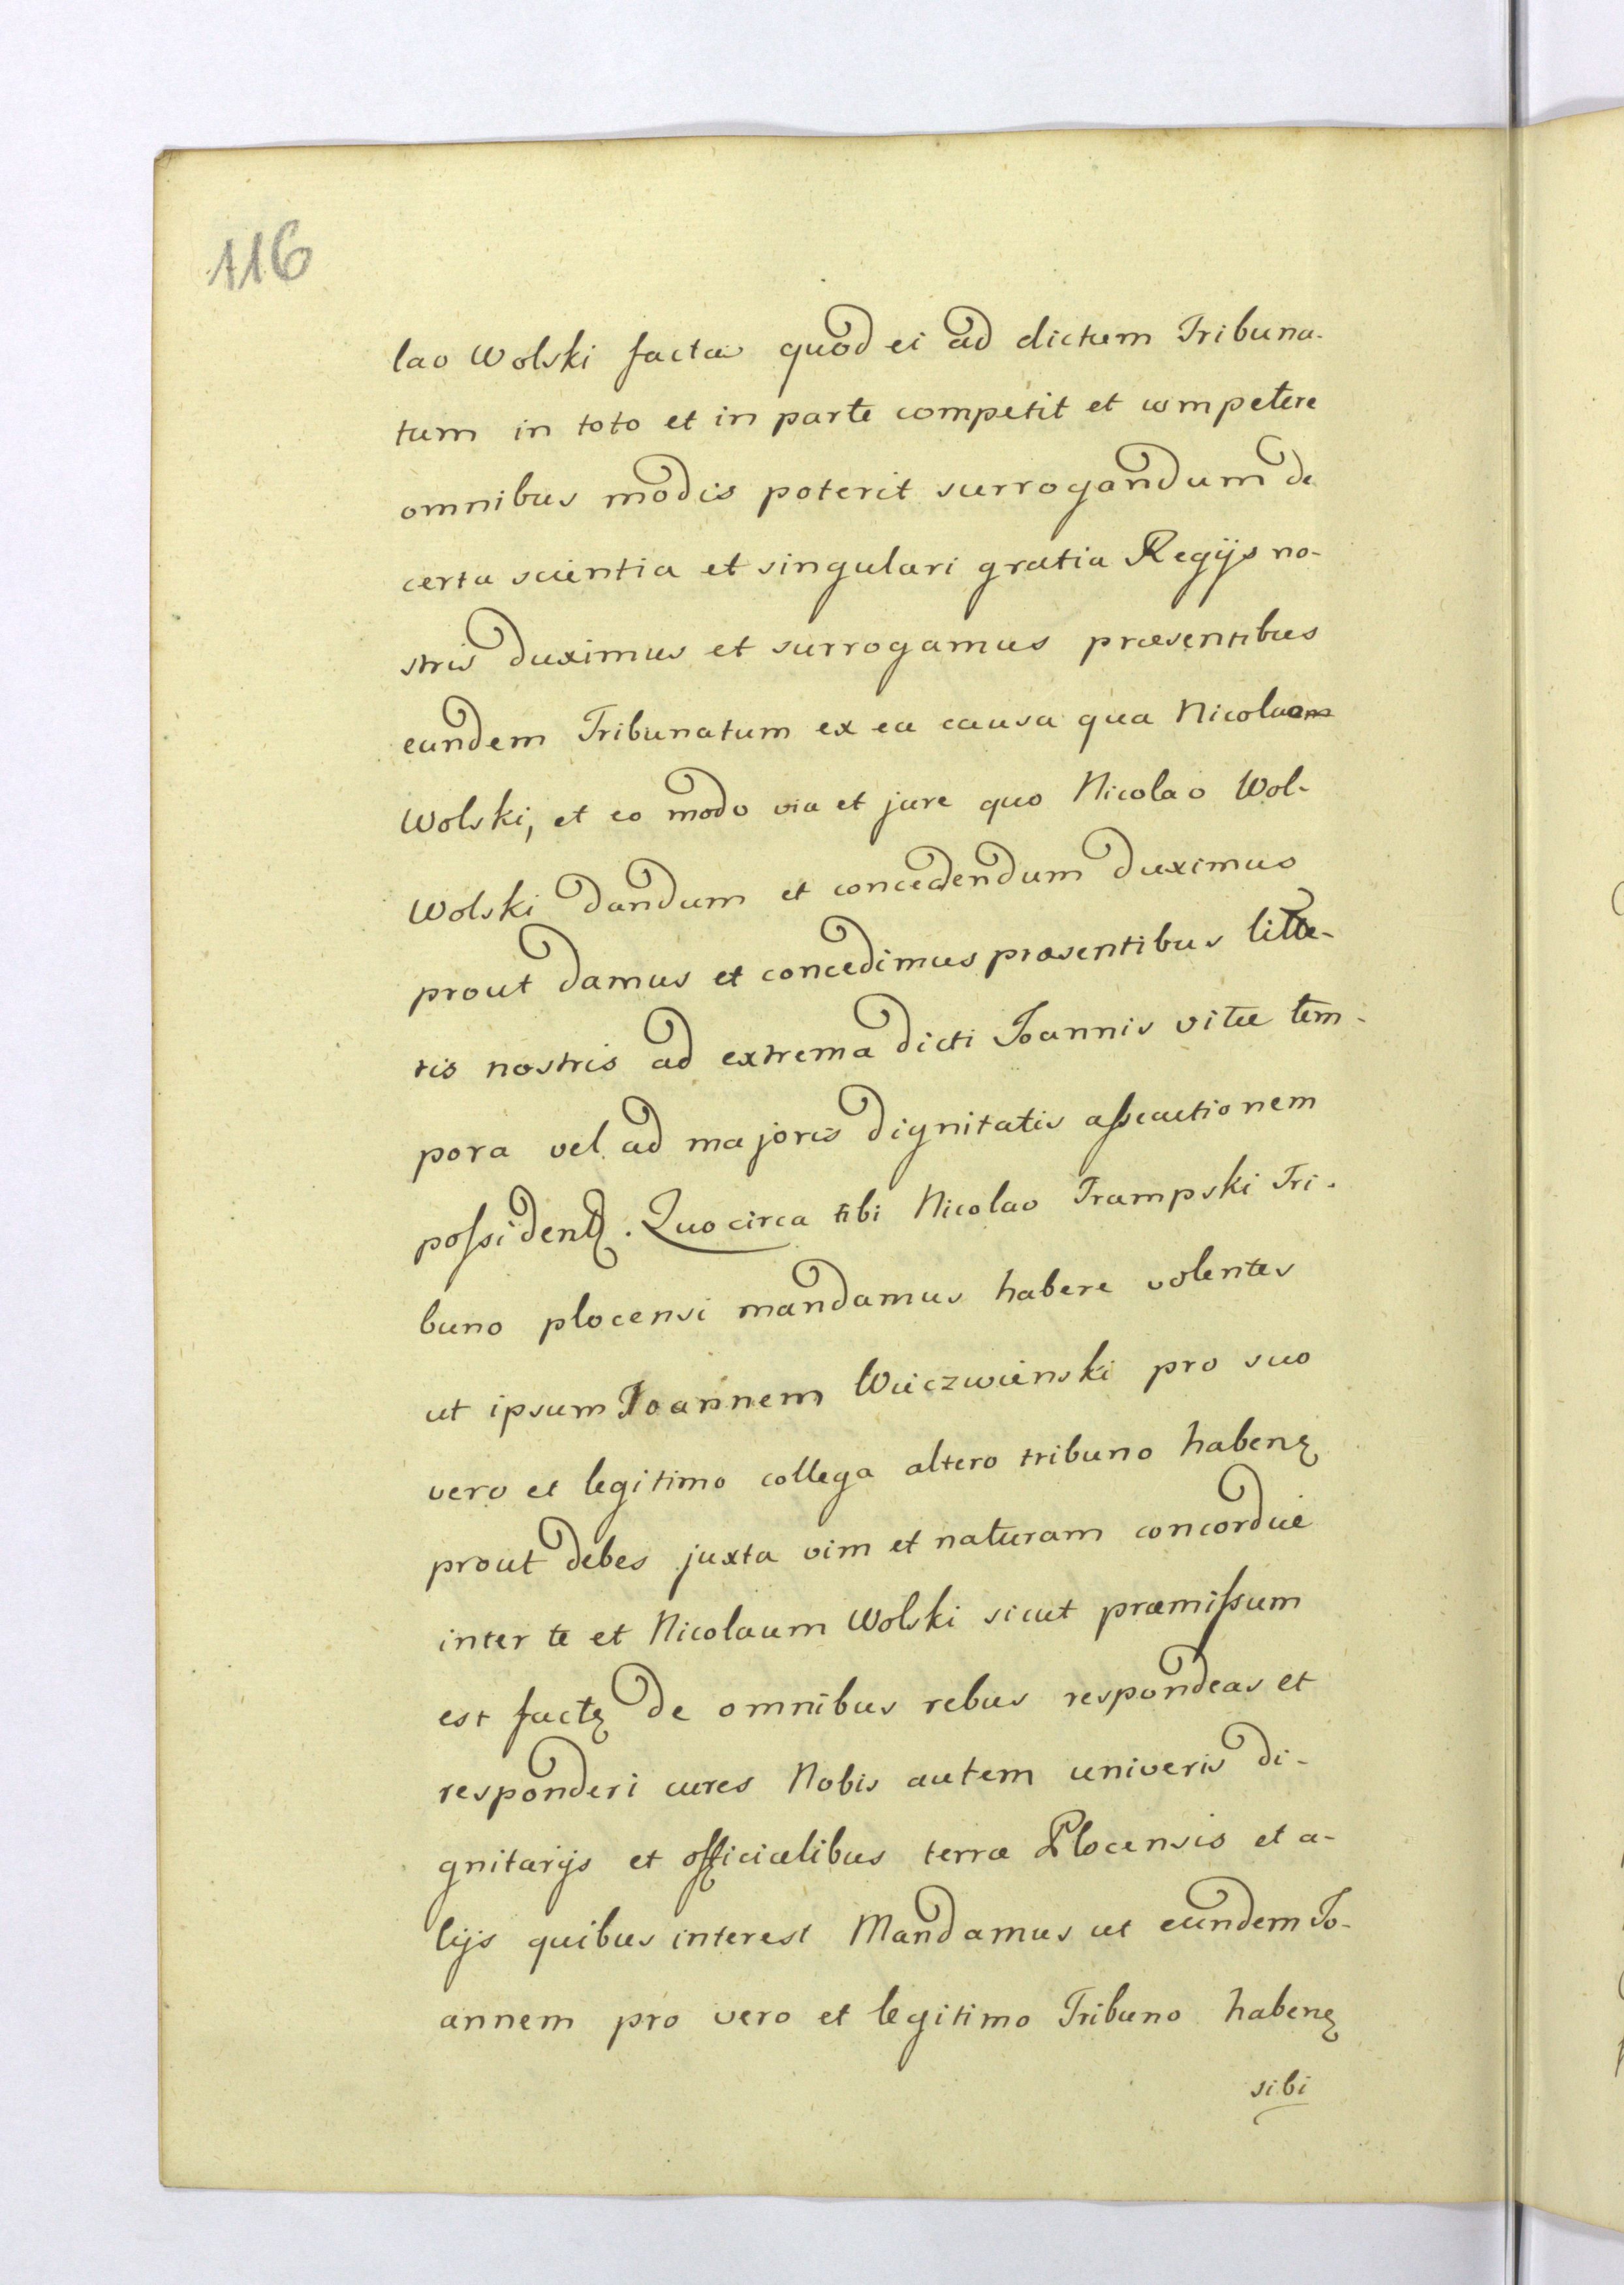 116
lao Wolski facta quod ei ad dictum Tribuna-
tum in toto et in parte competit et competere
omnibus modis poterit surrogandum de
certa scientia et singulari gratia Regijs no-
stris duximus et surrogamus præsentibus
eundem Tribunatum ex ea causa qua Nicolaum
Wolski, et eo modo via et jure quo Nicolao Wol-
Wolski dandum et concedendum duximus
prout damus et concedimus præsentibus litte-
ris nostris ad extrema dicti Joannis vitæ tem-
pora vel ad majoris dignitatis
possidenɖ. Quocirca tibi Nicolao Trampski Tri-
buno plocensi mandamus habere volentes
ut ipsum Joannem Wieczwienski pro suo
vero et legitimo collega altero tribuno habenꝫ
prout debes juxta vim et naturam concordiæ
inter te et Nicolaum Wolski sicut præmissum
est factꝫ de omnibus rebus respondeas et
responderi cures Nobis autem univeris di-
gnitarijs et officialibus terræ Plocensis et a-
lijs quibus interest Mandamus ut eundem Jo-
annem pro vero et legitimo Tribuno habenꝫ
sibi